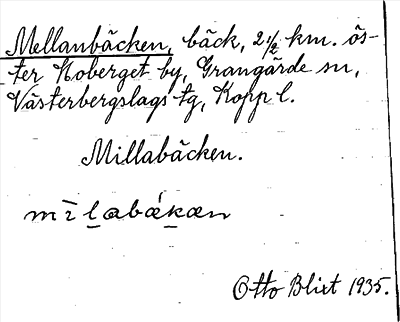 Mellanbäcken, bäck, 2 1/2 km. ös-
ter Hoberget by, Grangärde sn,
Västerbergslags tg, Kopp l.
Millabäcken.
Otto Blixt 1935.